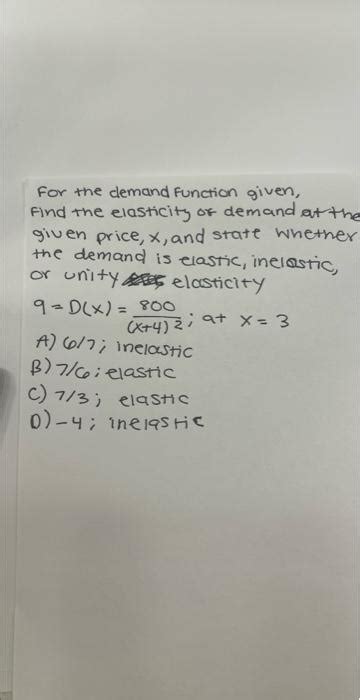 For the demand function given,
Find the elasticity of demand at the
given price, x, and state whether
the demand is elastic, inelastic,
or unity elasticity
q = D(x) = 800/(x+4)²; at x = 3
A) 6/7; inelastic
B) 7/6; elastic
C) 7/3; elastic
D) -4; inelastic